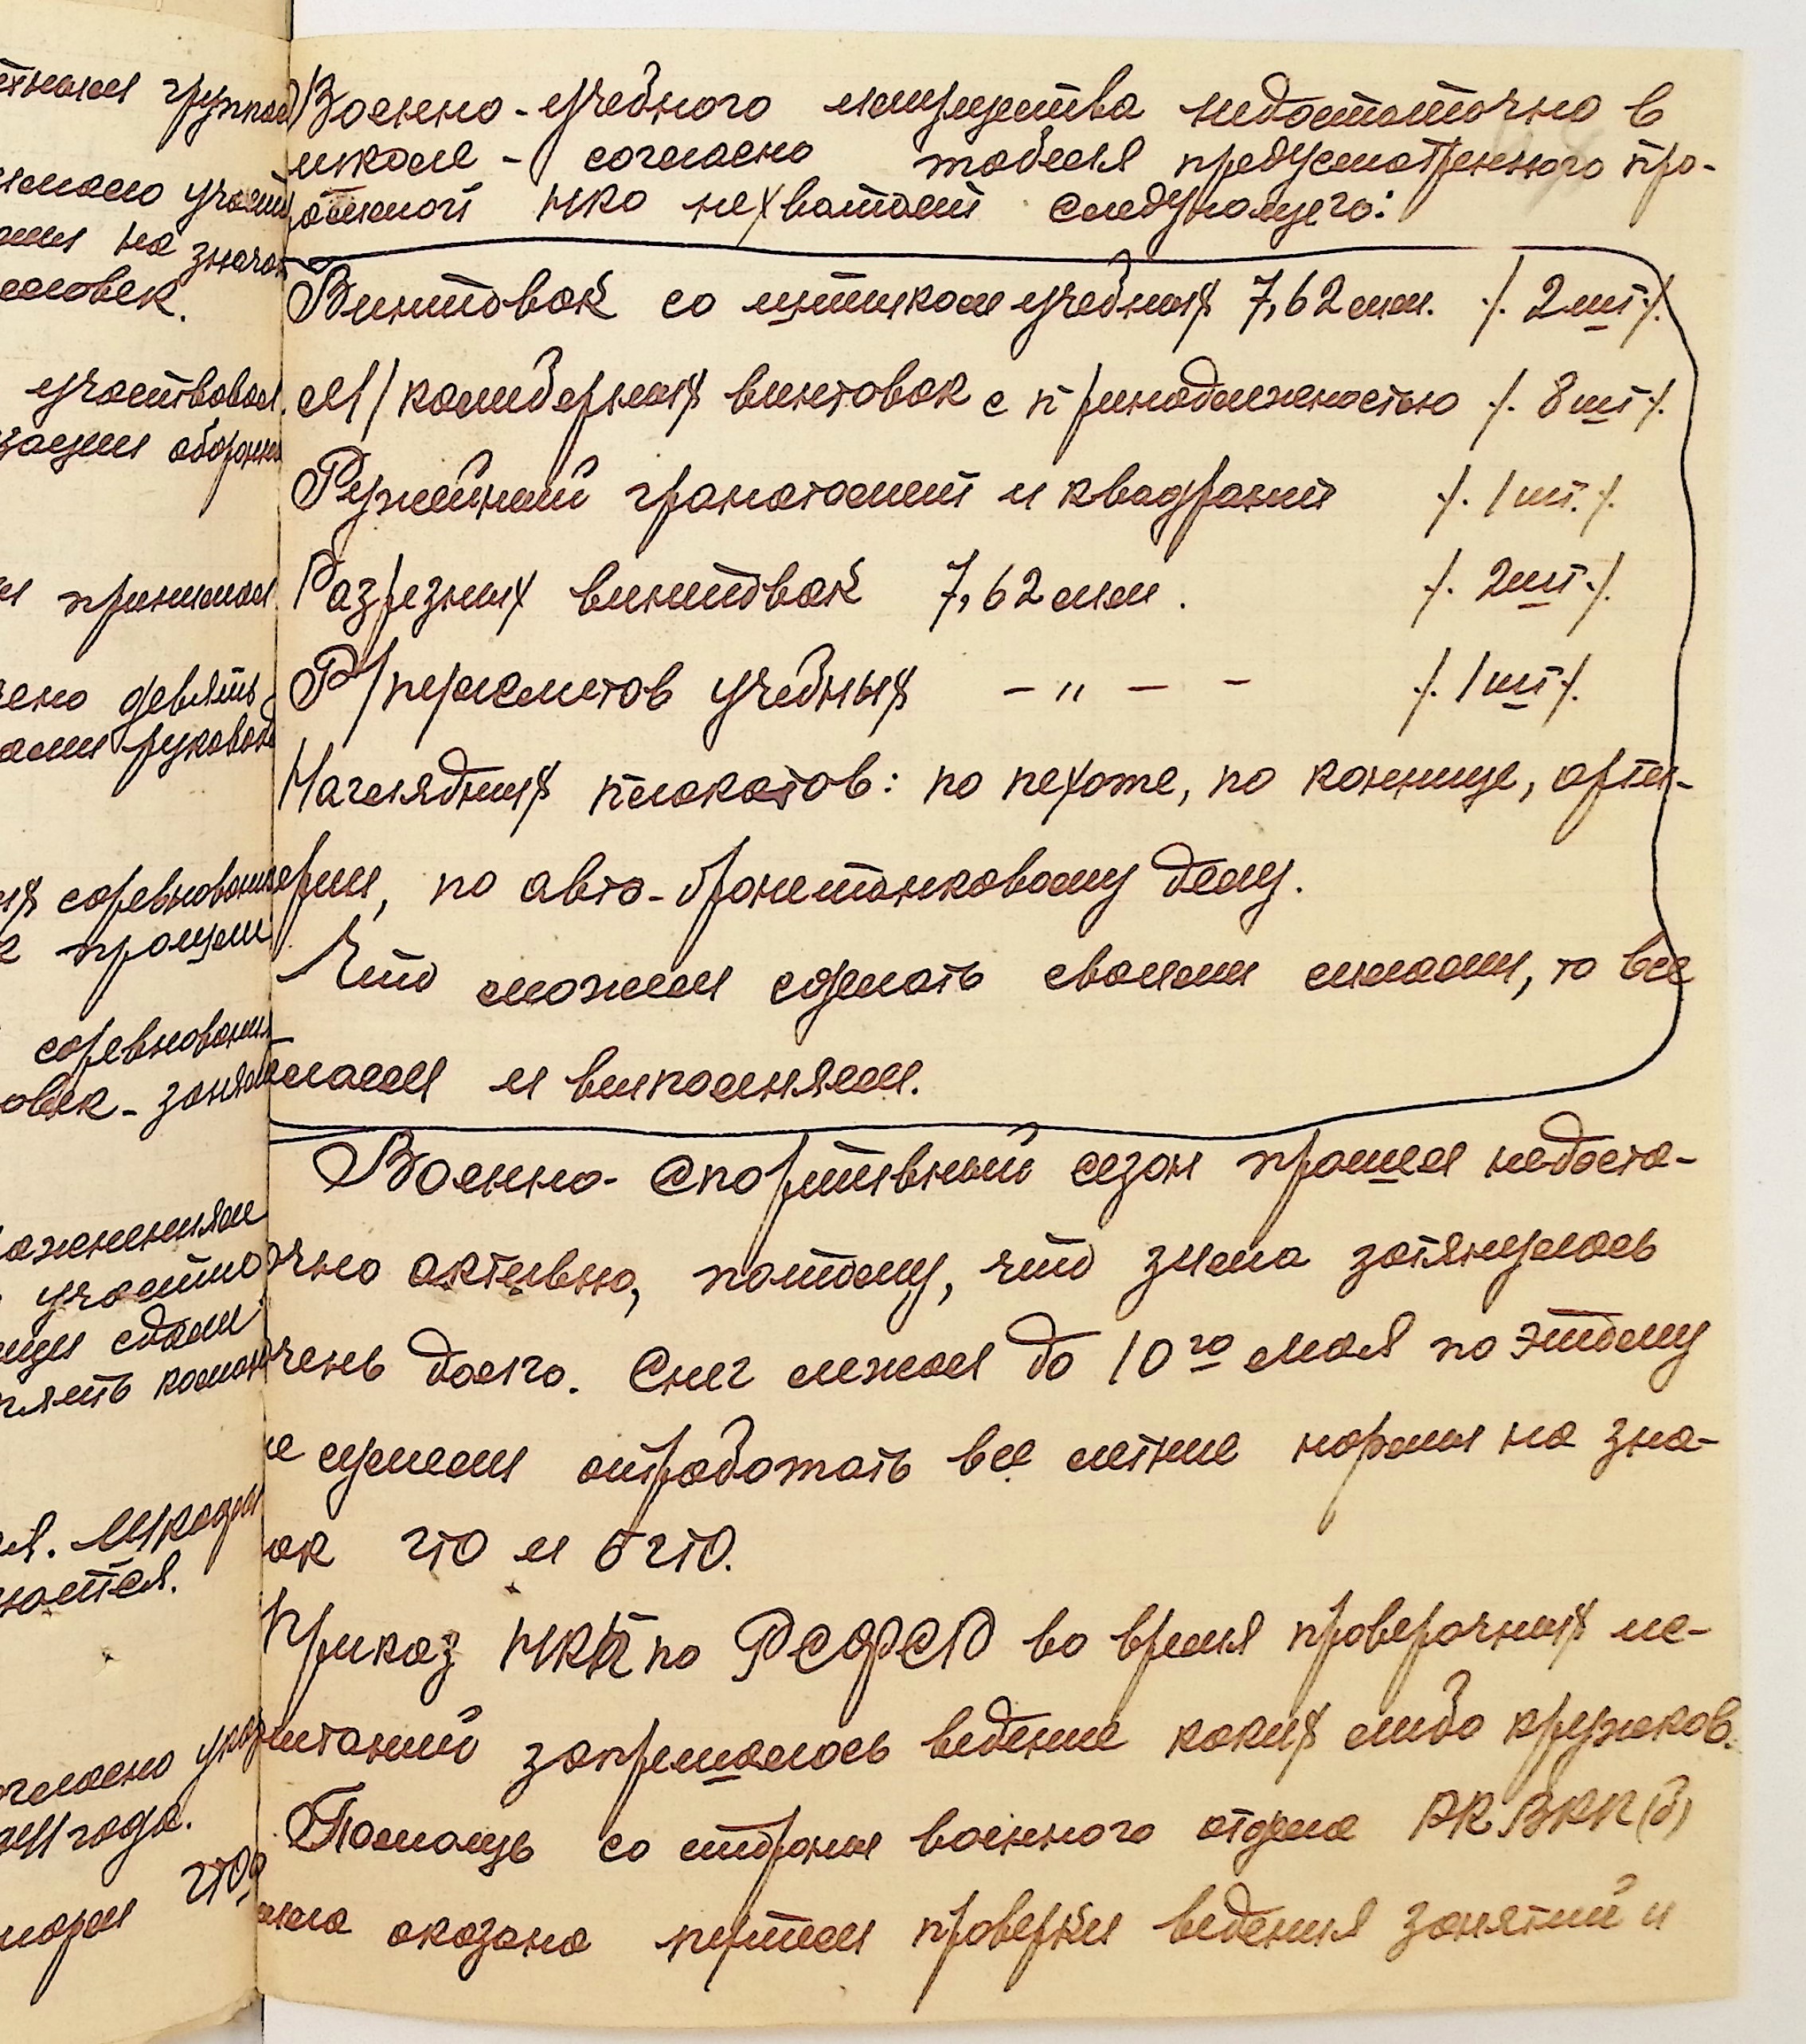 етным группов
имало участи
ами на значок
человек.
участвовал
зации оборонно
и принимал
чено девять
ами руковод
их соревнования
е прошли
соревновани
овек - занял
ожениям
участие
ищи сдали
пять коман
ся. Мкадры
ются.
огласно указ
941 года.
норм ГТО,
Военно-учебного имущества недостаточно в
школе - согласно табеля предусмотренного про-
аммой НКО нехватает следующего:
Винтовок со штиком учебных 7,62мм. /. 2шт/.
М/калиберных винтовок с принадлежностью /. 8шт/.
Ружейный гранатомет и квадрант /. 1шт./.
Разрезных винтовок 7,62мм. /. 2шт./.
Р/пулеметов учебных - " - - /. 1шт/.
Наглядных плакатов: по пехоте, по коннице, арти-
ерии, по авто-бронитанковому делу.
Что можем сделать своими силами, то все
лаем и выполняем.
Военно-спортивный сезон прошел недоста-
очно активно, потому, что зима затянулась
чень долго. Снег лежал до 10го мая по этому
не сумели отработать все летние нормы на зна-
ок ГТО и БГТО.
Приказ НКП по РСФСР во время проверочных ис-
ытаний запрешалось ведение каких либо кружков.
Помощь со стороны военного отдела РК ВКП(б)
ыла оказана путем проверки ведения занятий и